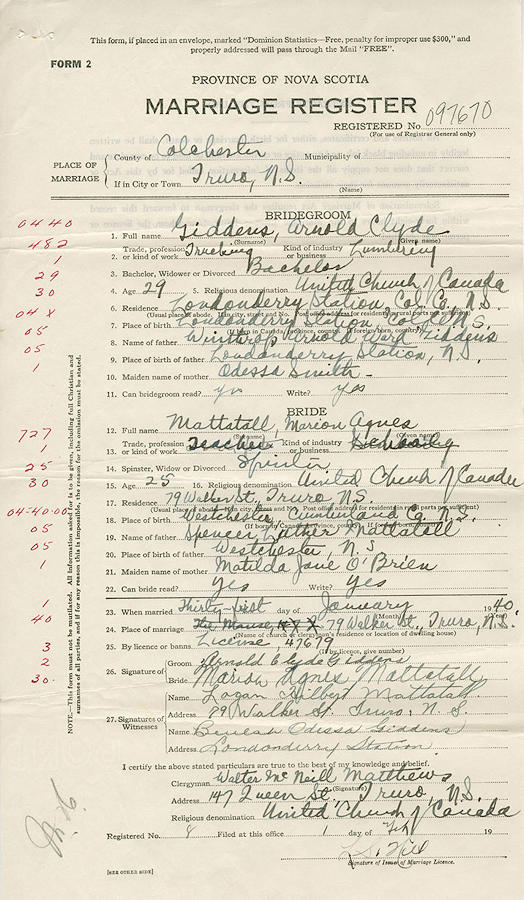 This form, if placed in an envelope, marked "Dominion Statistics—Free, penalty for improper use $300," and
properly addressed will pass through the Mail "FREE".
FORM 2
PROVINCE OF NOVA SCOTIA
MARRIAGE REGISTER
REGISTERED No. 097670
(For use of Registrar General only)
PLACE OF MARRIAGE
County of Colchester Municipality of
If in City or Town Truro, N.S.
(Name)
BRIDEGROOM
1. Full name Giddens, Arnold Clyde
(Surname) (Given name)
2. Trade, profession or kind of work Trucking Kind of industry or business Lumbering
3. Bachelor, Widower or Divorced Bachelor
4. Age 29 5. Religious denomination United Church of Canada
6. Residence Londonderry Station, Col. Co., N.S.
7. Place of birth Londonderry Station, Col. Co. N.S.
8. Name of father Winthrop Arnold Ward Giddens
9. Place of birth of father Londonderry Station, N.S.
10. Maiden name of mother Odessa Smith
11. Can bridegroom read? yes Write? yes
BRIDE
12. Full name Mattatall, Marion Agnes
(Surname) (Given name)
13. Trade, profession or kind of work Teacher Kind of industry or business
14. Spinster, Widow or Divorced Spinster
15. Age 25 16. Religious denomination United Church of Canada
17. Residence 79 Walker St., Truro, N.S.
18. Place of birth Westchester, Cumberland Co. N.S.
19. Name of father Spencer Luther Mattatall
20. Place of birth of father Westchester, N.S
21. Maiden name of mother Matilda Jane O'Brien
22. Can bride read? Yes Write? Yes
23. When married Thirty-first day of January 1940
(Month)
24. Place of marriage The Manse, X X X 79 Walker St., Truro, N.S.
(Name of church or clergyman's residence or location of dwelling house)
25. By licence or banns License, 47679
(If by licence, give number)
26. Signature of
Groom Arnold Clyde Giddens
Bride Marion Agnes Mattatall
27. Signatures of Witnesses
Name Logan Hilbert Mattatall
Address 79 Walker St. Truro, N. S.
Name Beulah Odessa Giddens
Address Londonderry Station
I certify the above stated particulars are true to the best of my knowledge and belief.
Clergyman Walter McNeill Matthews
(Signature)
Address 147 Queen St., Truro, N.S.
Religious denomination United Church of Canada
Registered No. 8 Filed at this office 1 day of Feb 19
Signature of Issuer of Marriage Licence.
[SEE OTHER SIDE]
NOTE.—This form must not be mutilated. All information asked for is to be given, including full Christian and
surnames of all parties, and if for any reason this is impossible, the reason for the omission must be stated.
0440
482
1
29
30
04 X
05
05
1
727
1
25
30
04-40-00
05
05
1
1
40
3
2
30